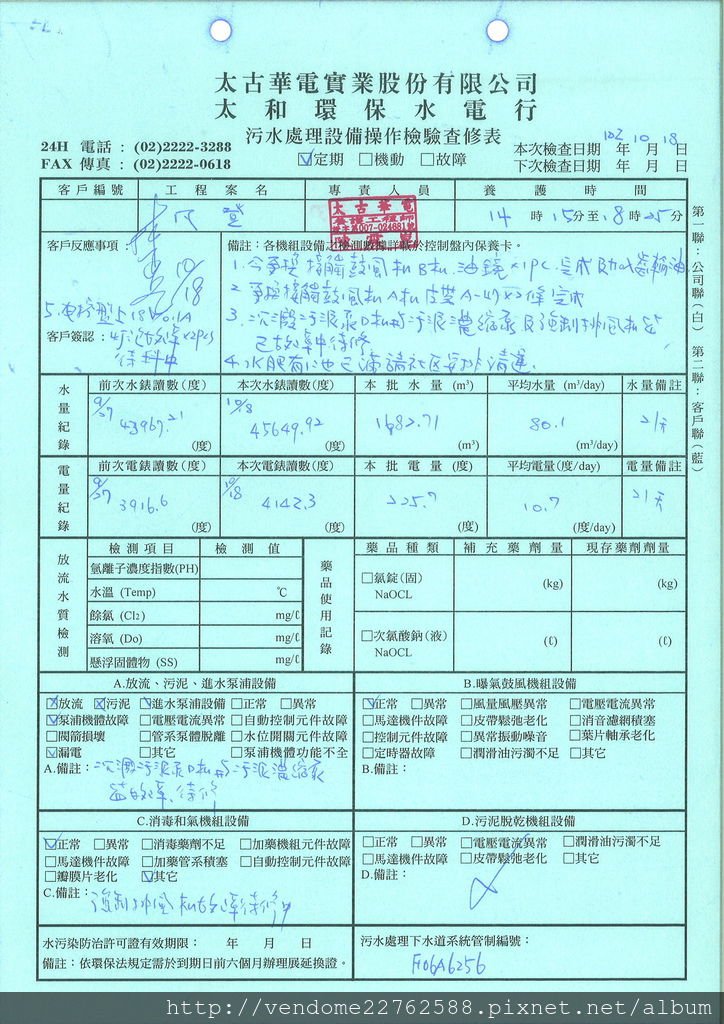 太古華電實業股份有限公司
太和環保水電行
污水處理設備操作檢驗查修表
24H 電話：(02)2222-3288
FAX 傳真：(02)2222-0618
☑定期 □機動 □故障
本次檢查日期 102年10月18日
下次檢查日期 年 月 日
客戶編號 工程案名 專責人員 養護時間
凡登
太古華電
14時15分至18時25分
客戶反應事項：
10/18
5.電控盤上
客戶簽認：
待料中
備註：各機組設備之檢測數據詳載於控制盤內保養卡。
1.今更換接觸鼓風機B機油鏡×1PC.完成
2.更換接觸鼓風機A機皮帶A-47×2條完成
3.沉澱污泥泵D機與污泥濃縮泵及強制排風機皆
已故障中待修
4.水肥有池已滿請社區安排清運.
水量紀錄
前次水錶讀數(度) 本次水錶讀數(度) 本批水量(m³) 平均水量(m³/day) 水量備註
9/27 43967.21 (度) 10/18 45649.92 (度) 1682.71 (m³) 80.1 (m³/day) 21天
電量紀錄
前次電錶讀數(度) 本次電錶讀數(度) 本批電量(度) 平均電量(度/day) 電量備註
9/27 3916.6 (度) 10/18 4142.3 (度) 225.7 (度) 10.7 (度/day) 21天
放流水質檢測
檢測項目 檢測值
氫離子濃度指數(PH)
水溫 (Temp) ℃
餘氯 (Cl2) mg/ℓ
溶氧 (Do) mg/ℓ
懸浮固體物 (SS) mg/ℓ
藥品使用記錄
藥品種類 補充藥劑量 現存藥劑劑量
□氯錠(固) NaOCL (kg) (kg)
□次氯酸鈉(液) NaOCL (ℓ) (ℓ)
A.放流、污泥、進水泵浦設備
☑放流 ☑污泥 ☑進水泵浦設備 □正常 □異常
☑泵浦機體故障 □電壓電流異常 □自動控制元件故障
□閥箭損壞 □管系泵體脫離 □水位開關元件故障
☑漏電 □其它 □泵浦機體功能不全
A.備註：沉澱污泥泵D機與污泥濃縮泵
故障.待修
B.曝氣鼓風機組設備
☑正常 □異常 □風量風壓異常 □電壓電流異常
□馬達機件故障 □皮帶鬆弛老化 □消音濾網積塞
□控制元件故障 □異常振動噪音 □葉片軸承老化
□定時器故障 □潤滑油污濁不足 □其它
B.備註：
C.消毒和氣機組設備
☑正常 □異常 □消毒藥劑不足 □加藥機組元件故障
□馬達機件故障 □加藥管系積塞 □自動控制元件故障
□瓣膜片老化 ☑其它
C.備註：強制排風機故障待修中
D.污泥脫乾機組設備
□正常 □異常 □電壓電流異常 □潤滑油污濁不足
□馬達機件故障 □皮帶鬆弛老化 □其它
D.備註：
水污染防治許可證有效期限： 年 月 日
備註：依環保法規定需於到期日前六個月辦理展延換證。
污水處理下水道系統管制編號：
F06A6256
第一聯：公司聯(白) 第二聯：客戶聯(藍)
http://vendome22762588.pixnet.net/album